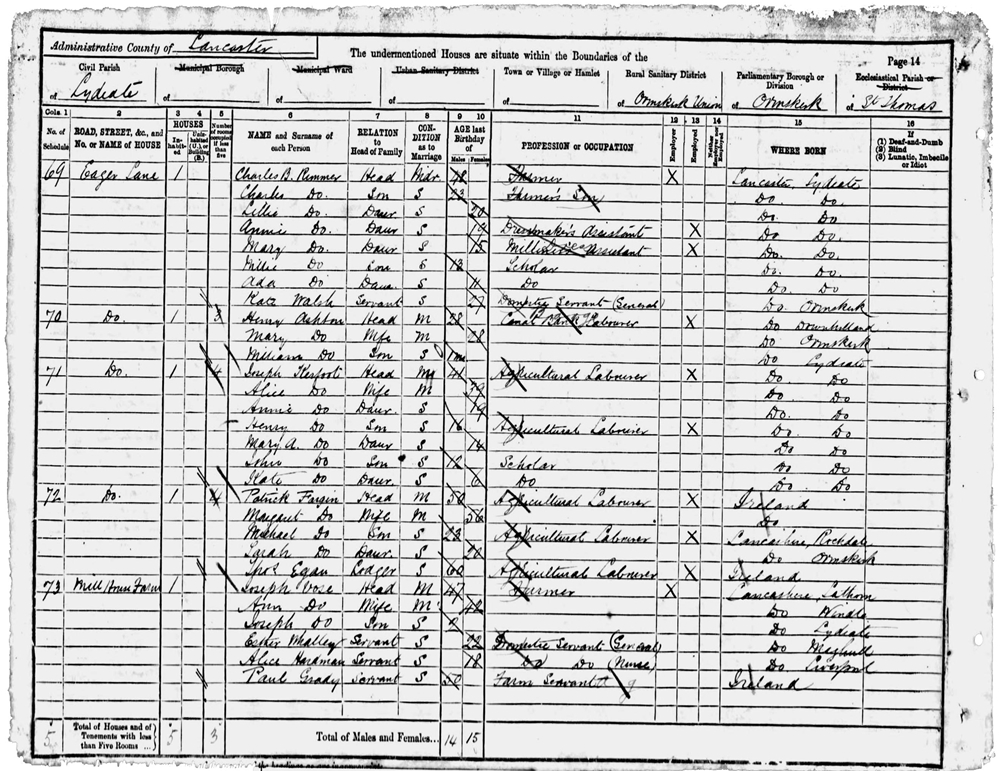 Administrative County of Lancaster
The undermentioned Houses are situate within the Boundaries of the
Page 14
Civil Parish of Lydiate
Municipal Borough of
Municipal Ward of
Urban Sanitary District of
Town or Village or Hamlet of
Rural Sanitary District of Ormskirk Union
Parliamentary Borough or Division of Ormskirk
Ecclesiastical Parish or District of St Thomas
Cols. 1 2 3 4 5 6 7 8 9 10 11 12 13 14 15 16
No. of Schedule
ROAD, STREET, &c., and No. or NAME of HOUSE
HOUSES
In-habited
Uninhabited (U.), or Building (B.)
Number of rooms occupied if less than five
NAME and Surname of each Person
RELATION to Head of Family
CONDITION as to Marriage
AGE last Birthday of
Males Females
PROFESSION or OCCUPATION
Employer
Employed
Neither Employer nor Employed
WHERE BORN
If
(1) Deaf-and-Dumb
(2) Blind
(3) Lunatic, Imbecile or Idiot
69 Eager Lane 1 Charles B. Rimmer Head Wdr 48 Farmer X Lancaster, Lydiate
Charles Do Son S 23 Farmer's Son Do Do.
Lillie Do. Daur S 20 Do. Do
Annie Do. Daur S 19 Dressmaker's Assistant X Do Do.
Mary Do Daur S 15 Assistant X Do. Do
Do Son S 13 Scholar Do. Do.
Ada Do Daur. S 11 Do Do. Do
Kate Walsh Servant S 27 Domestic Servant (General) Do. Ormskirk
70 Do. 1 3 Henry Ashton Head M 28 Canal Bank Labourer X Do Downholland
Mary Do Wife M 28 Do Ormskirk
William Do Son S 1 Do Lydiate
71 Do. 1 4 Joseph Kerfoot Head M 41 Agricultural Labourer X Do. Do
Alice Do Wife M 39 Do. Do
Annie Do Daur. S 19 Do. Do
Henry Do Son S 16 Agricultural Labourer X Do Do
Mary A. Do Daur S 14 Do Do
John Do Son S 12 Scholar Do Do
Kate Do Daur. S 6 Do Do. Do
72 Do. 1 4 Patrick Head M 50 Agricultural Labourer X Ireland
Margaret Do Wife M 56 Do
Michael Do Son S 23 Agricultural Labourer X Lancashire, Rochdale
Sarah Do Daur. S 20 Do Ormskirk
Thos. Egan Lodger S 60 Agricultural Labourer X Ireland
73 Mill House Farm 1 Joseph Vose Head M 47 Farmer X Lancashire, Lathom
Ann Do Wife M 42 Do Windle
Joseph Do Son S 2 Do Lydiate
Esther Whalley Servant S 22 Domestic Servant (General) Do Maghull
Alice Hardman Servant S 18 Do Do (Nurse) Do Liverpool
Paul Grady Servant S 50 Farm Servant Ireland
5 Total of Houses and of Tenements with less than Five Rooms ... 5 3 Total of Males and Females... 14 15